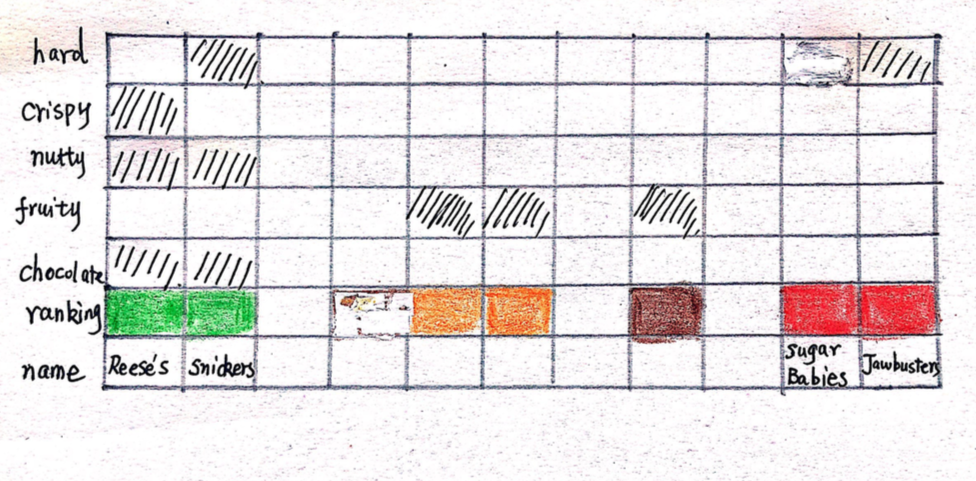 hard
crispy
nutty
fruity
chocolate
ranking
name Reese's Snickers Sugar Babies Jawbusters